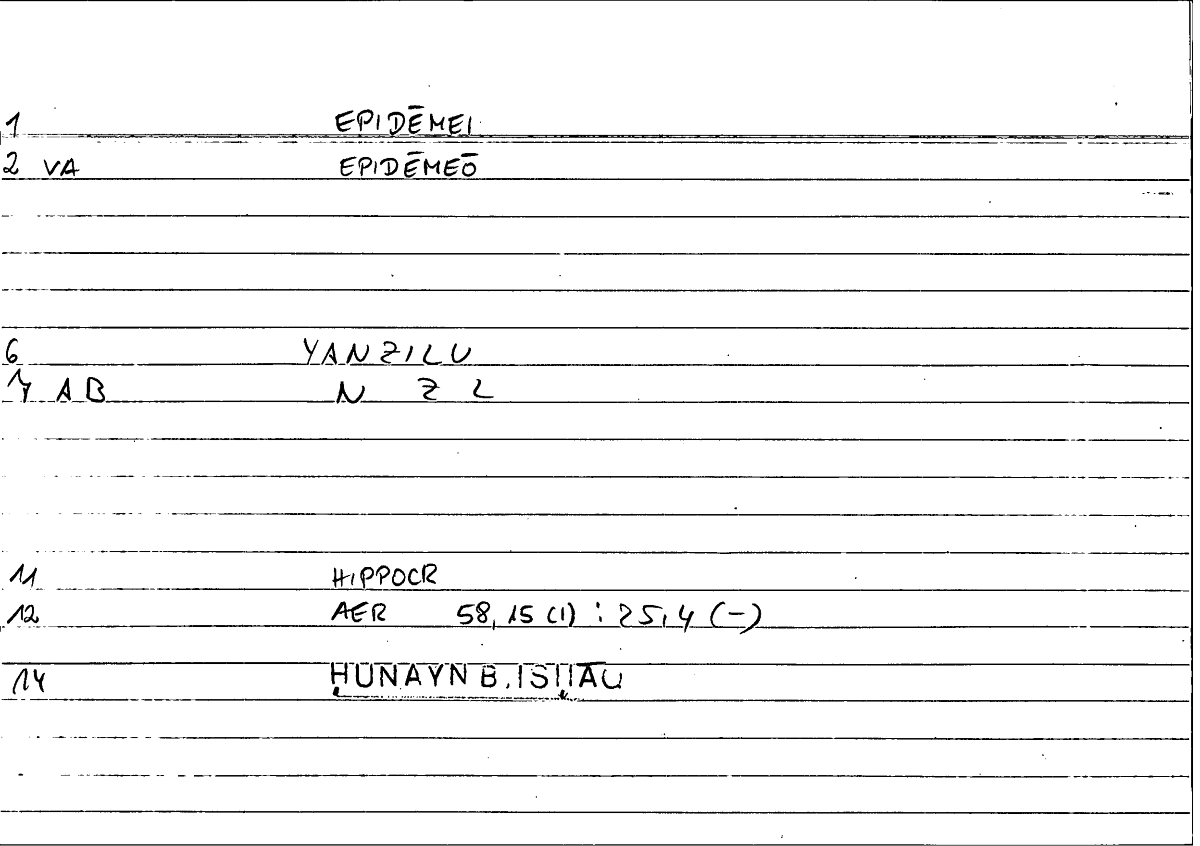 1 EPIDĒMEI
2 VA EPIDĒMEŌ
6 YANZILU
7 AB N Z L
11 HIPPOCR
12 AER 58,15 (1) : 25,4 (-)
14 ḤUNAYN B. ISḤĀQ